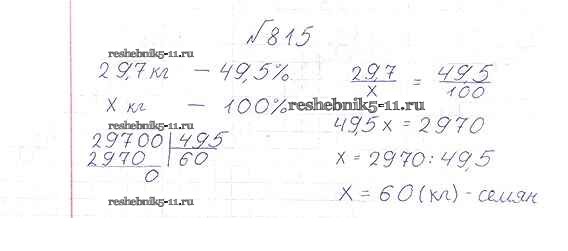 №815
reshebnik5-11.ru
29,7 кг – 49,5%
x кг – 100%
29,7/x = 49,5/100
reshebnik5-11.ru
49,5 x = 2970
x = 2970 : 49,5
x = 60 (кг) - семян
reshebnik5-11.ru
29700 | 495
2970 | 60
0
reshebnik5-11.ru